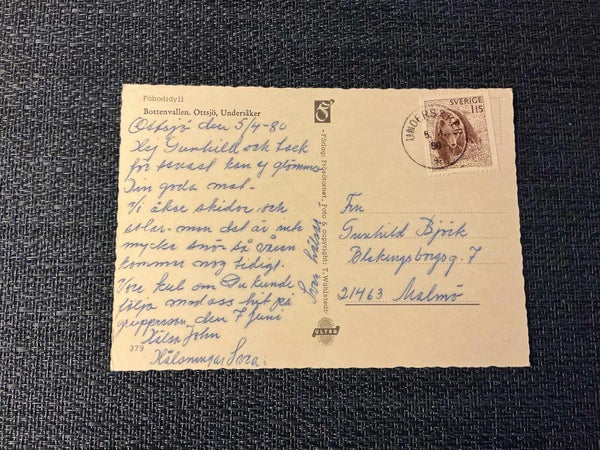 Fäbodsidyll
Bottenvallen. Ottsjö, Undersåker
Ottsjö den 5/4-80
Hej Gunhild och tack
för senast kan ej glömma
Din goda mat.
Vi åker skidor och
solar. men det är inte
mycket snö så våren
kommer nog tidigt.
Vore kul om Du kunde
följa med oss hit på
gruppresan den 7 juni
Hälsa John
Hälsningar Svea.
379
Svea hälsar
Förlag: Frisöfternet. Foto & copyright: T. Wahlstedt
ULTRA
UNDERSÅKER
5.
80
SVERIGE
115
Fru
Gunhild Björk
Blekingsborgsg. 7
21463 Malmö